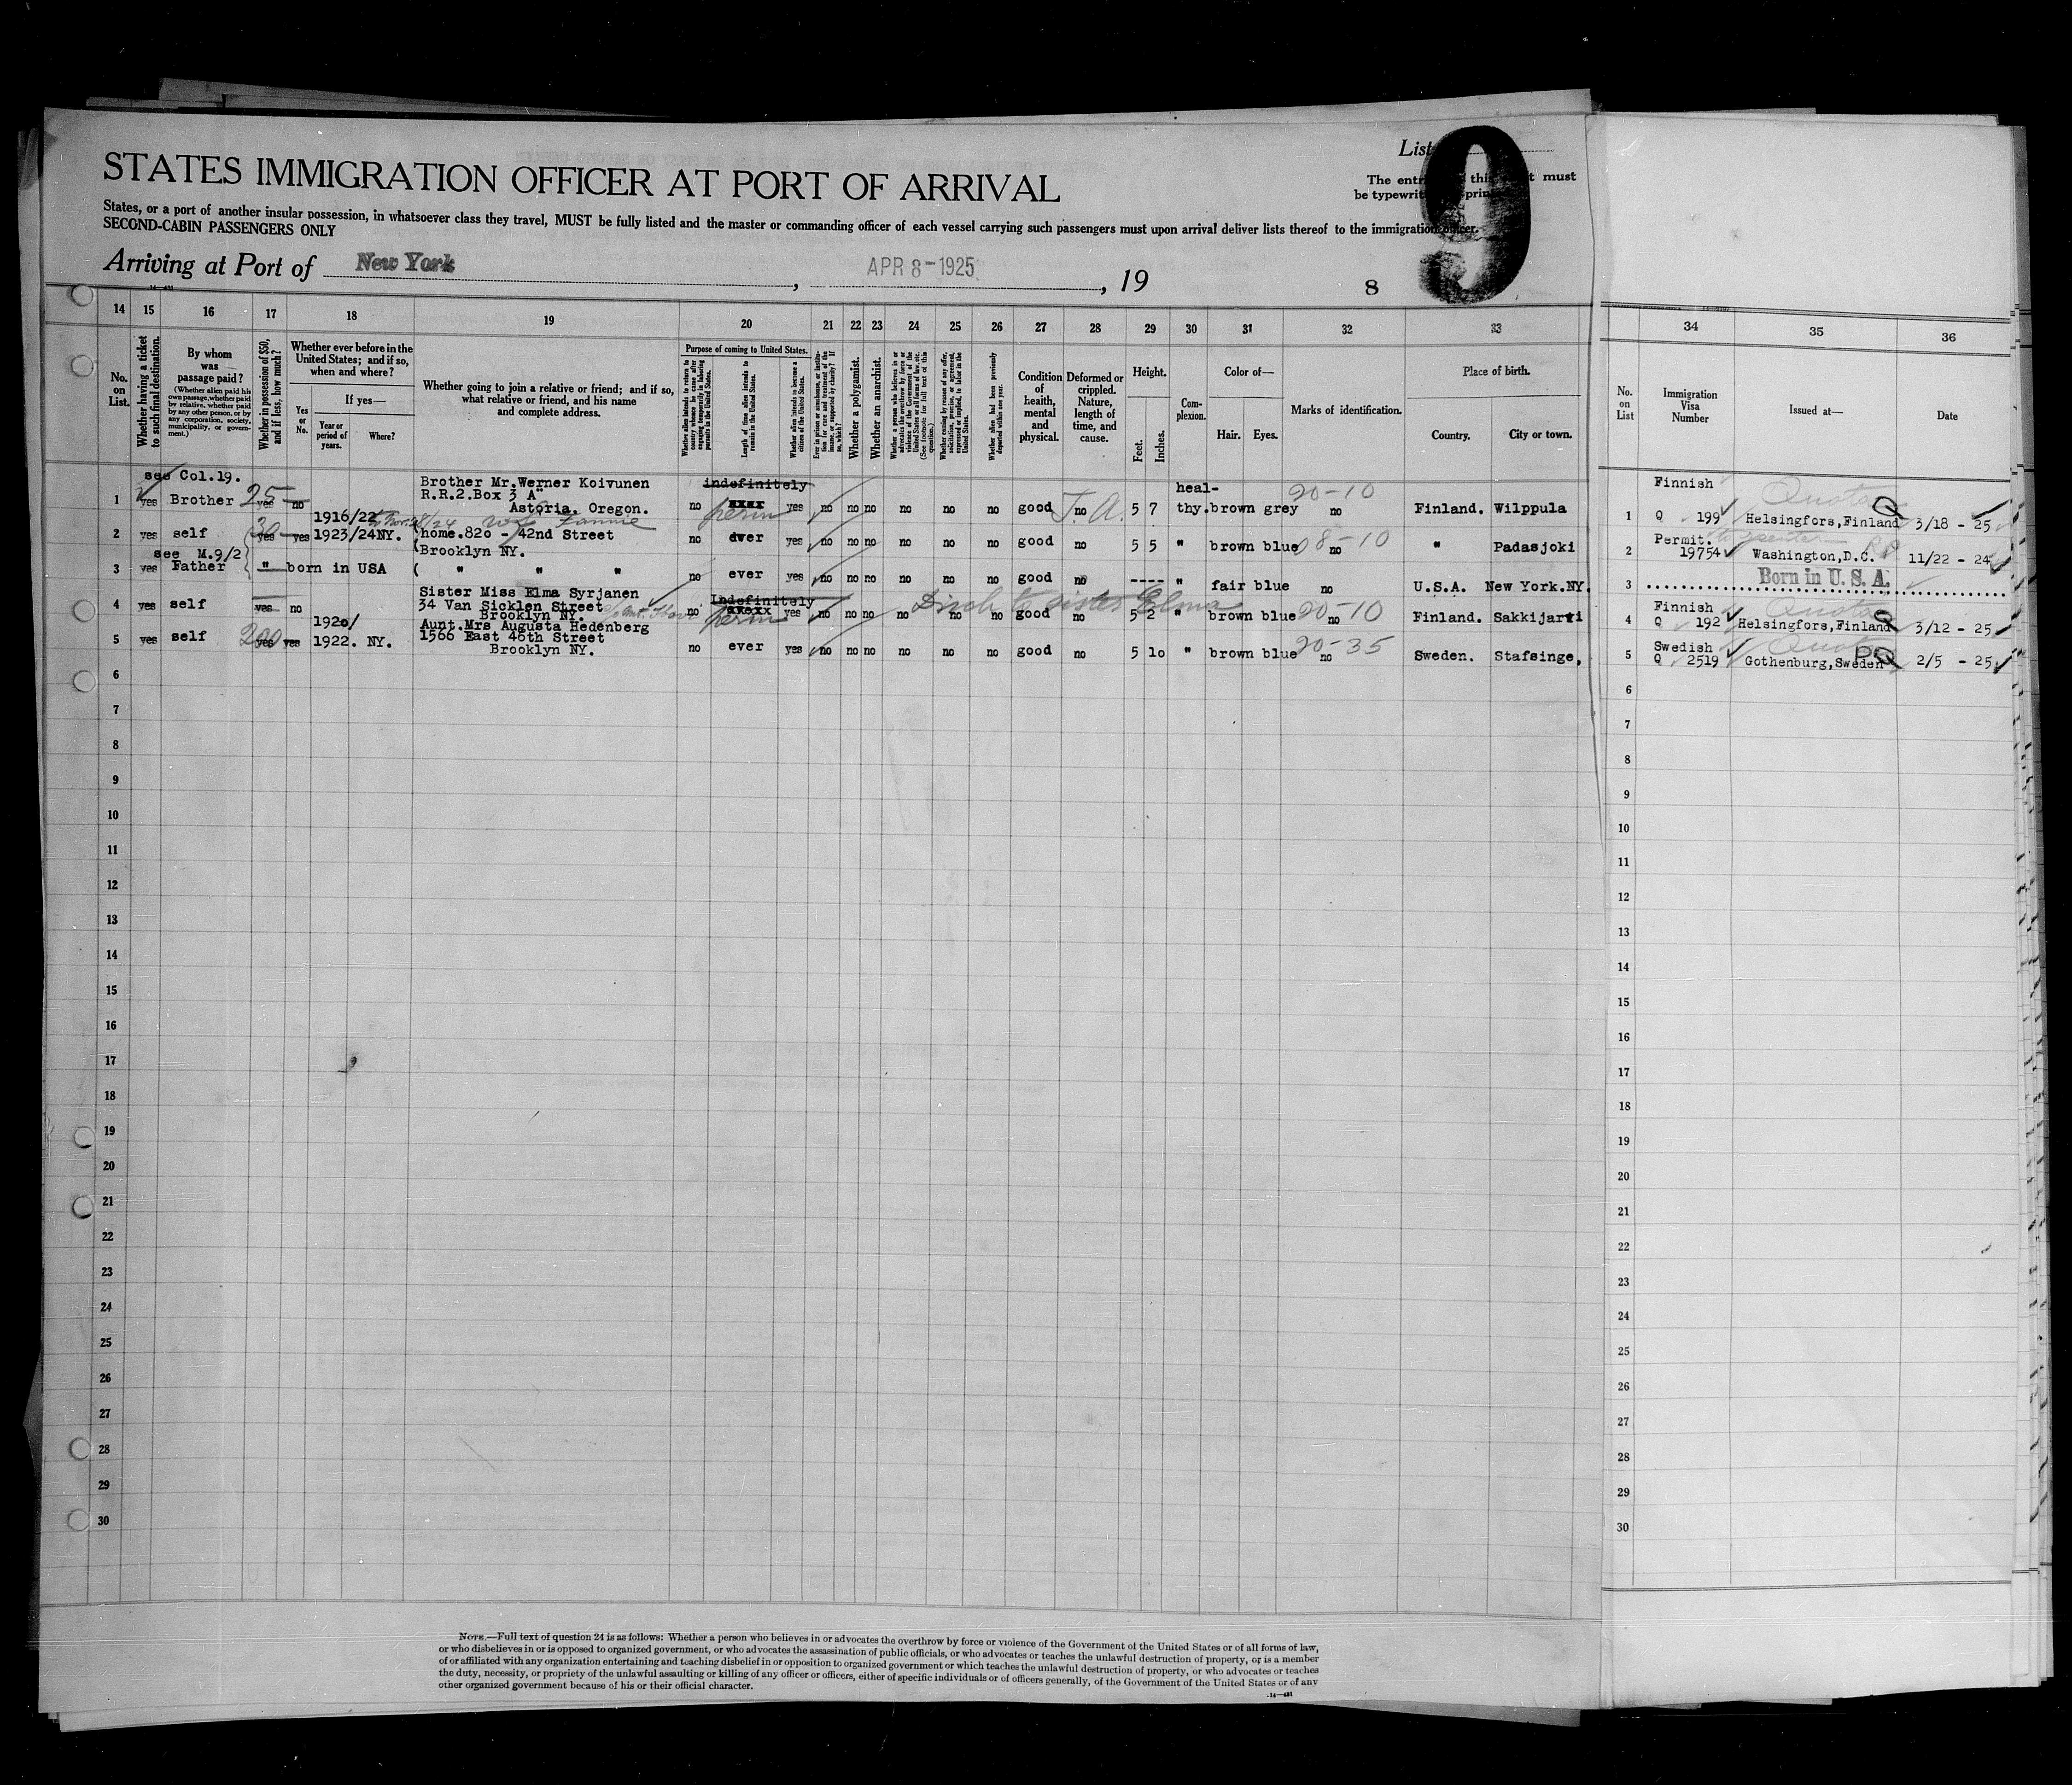 STATES IMMIGRATION OFFICER AT PORT OF ARRIVAL
List
9
The this must
be typewrit
States, or a port of another insular possession, in whatsoever class they travel, MUST be fully listed and the master or commanding officer of each vessel carrying such passengers must upon arrival deliver lists thereof to the immigration officer.
SECOND-CABIN PASSENGERS ONLY
Arriving at Port of New York, APR 8-1925, 19
8
14 15 16 17 18 19 20 21 22 23 24 25 26 27 28 29 30 31 32 33 34 35 36
No. on List.
Whether having a ticket to such final destination.
By whom was passage paid?
(Whether alien paid his own passage, whether paid by relative, whether paid by any other person, or by any corporation, society, municipality, or government.)
Whether in possession of $50, and if less, how much?
Whether ever before in the United States; and if so, when and where?
Yes or No.
If yes—
Year or period of years.
Where?
Whether going to join a relative or friend; and if so, what relative or friend, and his name and complete address.
Purpose of coming to United States.
Whether alien intends to return to country whence he came after engaging temporarily in laboring pursuits in the United States.
Length of time alien intends to remain in the United States.
Whether alien intends to become a citizen of the United States.
Whether a polygamist.
Whether an anarchist.
Condition of health, mental and physical.
Deformed or crippled. Nature, length of time, and cause.
Height.
Feet.
Inches.
Complexion.
Color of—
Hair.
Eyes.
Marks of identification.
Place of birth.
Country.
City or town.
No. on List
Immigration Visa Number
Issued at—
Date
see Col.19. Brother Mr.Werner Koivunen indefinitely heal- 20-10 Finnish Quota
1 yes Brother 25 yes no R.R.2.Box 3 A" Astoria. Oregon. no perm yes no no no no no no good T.A. no 5 7 thy. brown grey no Finland. Wilppula 1 Q 199 Helsingfors,Finland Q 3/18 - 25
1916/22
2 yes self 30 yes yes 1923/24NY. (home.82o - 42nd Street no ever yes no no no no no no good no 5 5 " brown blue 8-10 no " Padasjoki 2 Permit. 19754 Washington,D.C. 11/22 - 24
see M.9/2 (Brooklyn NY.
3 yes Father " born in USA ( " " " no ever yes no no no no no no good no ---- " fair blue no U.S.A. New York.NY. 3 Born in U. S. A.
Sister Miss Elma Syrjanen Indefinitely
4 yes self yes no 34 Van Sicklen Street Brooklyn NY. no perm yes no no no no no no good no 5 2 " brown blue 20-10 no Finland. Sakkijarvi 4 Finnish Q 192 Helsingfors,Finland Q 3/12 - 25
Disch to sister Elma
192o/ Aunt.Mrs Augusta Hedenberg
5 yes self 200 yes yes 1922. NY. 1566 East 46th Street Brooklyn NY. no ever yes no no no no no no good no 5 1o " brown blue 20-35 no Sweden. Stafsinge, 5 Swedish Q 2519 Gothenburg,Sweden PQ 2/5 - 25
6 6
7 7
8 8
9 9
10 10
11 11
12 12
13 13
14 14
15 15
16 16
17 17
18 18
19 19
20 20
21 21
22 22
23 23
24 24
25 25
26 26
27 27
28 28
29 29
30 30
NOTE.—Full text of question 24 is as follows: Whether a person who believes in or advocates the overthrow by force or violence of the Government of the United States or of all forms of law,
or who disbelieves in or is opposed to organized government, or who advocates the assassination of public officials, or who advocates or teaches the unlawful destruction of property, or is a member
of or affiliated with any organization entertaining and teaching disbelief in or opposition to organized government or which teaches the unlawful destruction of property, or who advocates or teaches
the duty, necessity, or propriety of the unlawful assaulting or killing of any officer or officers, either of specific individuals or of officers generally, of the Government of the United States or of any
other organized government because of his or their official character.
14—481